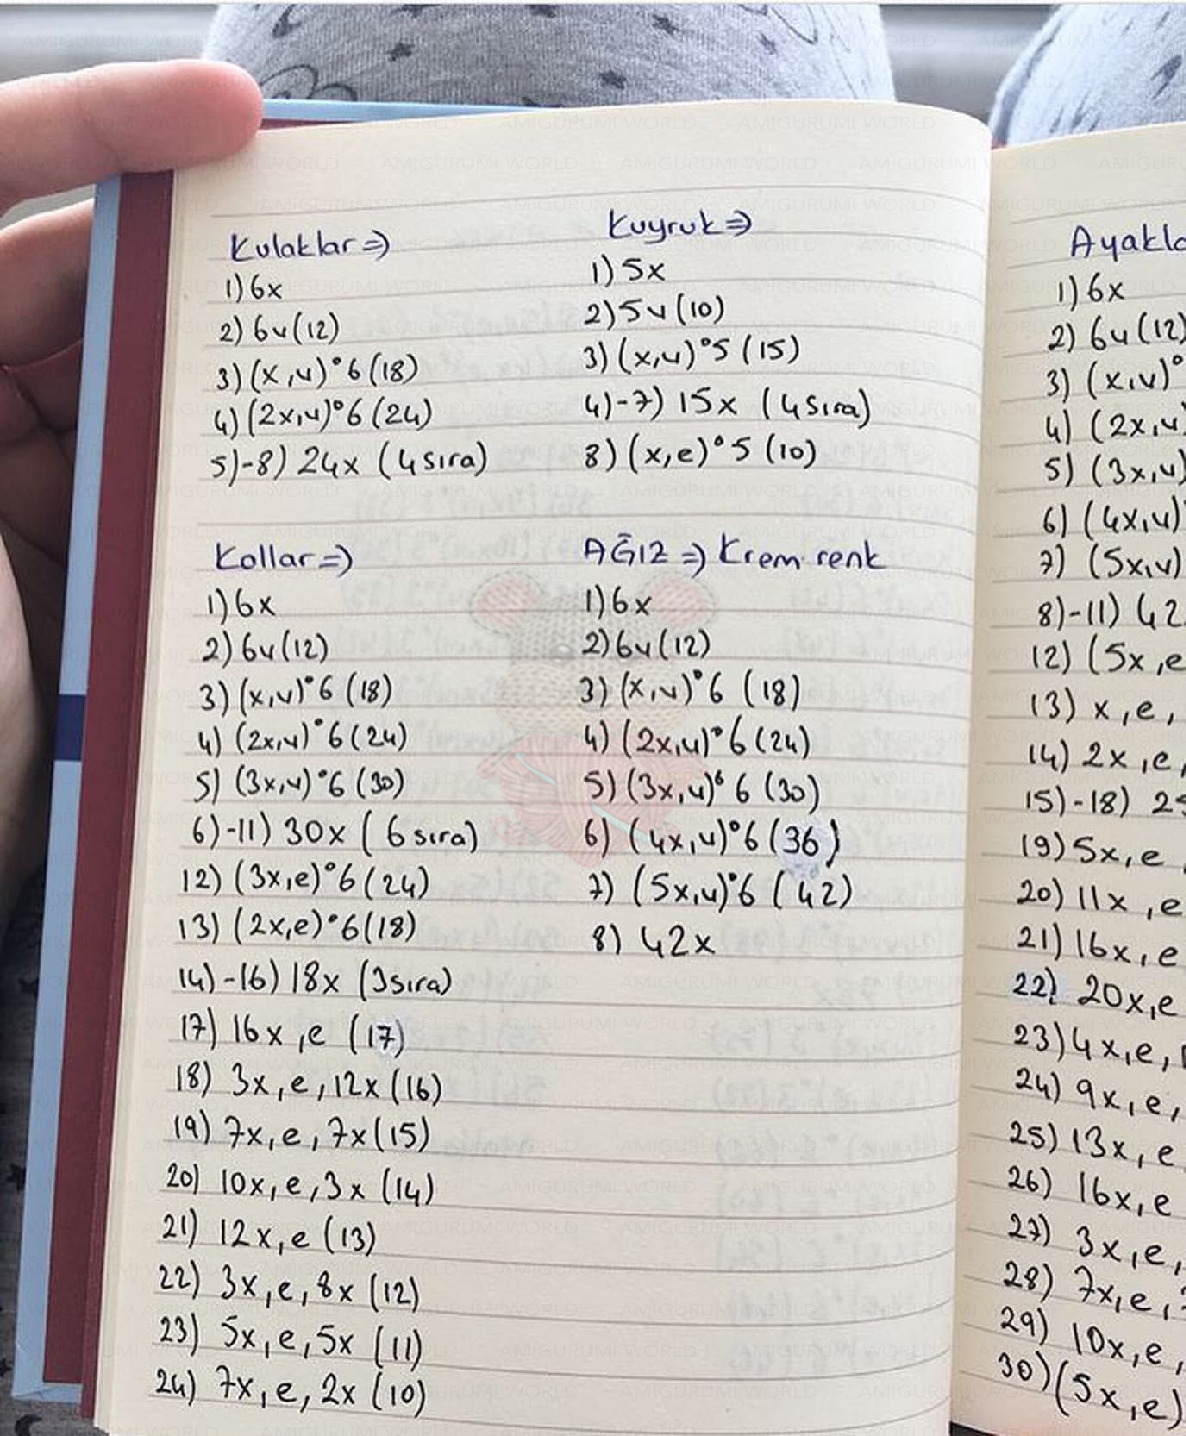 Kulaklar =>
1) 6x
2) 6v (12)
3) (x,v)°6 (18)
4) (2x,v)°6 (24)
5)-8) 24x (4 sıra)
Kuyruk =>
1) 5x
2) 5v (10)
3) (x,v)°5 (15)
4)-7) 15x (4 sıra)
8) (x,e)°5 (10)
Kollar =>
1) 6x
2) 6v (12)
3) (x,v)°6 (18)
4) (2x,v)°6 (24)
5) (3x,v)°6 (30)
6)-11) 30x (6 sıra)
12) (3x,e)°6 (24)
13) (2x,e)°6 (18)
14)-16) 18x (3 sıra)
17) 16x,e (17)
18) 3x,e,12x (16)
19) 7x,e,7x (15)
20) 10x,e,3x (14)
21) 12x,e (13)
22) 3x,e,8x (12)
23) 5x,e,5x (11)
24) 7x,e,2x (10)
AĞIZ => Krem renk
1) 6x
2) 6v (12)
3) (x,v)°6 (18)
4) (2x,v)°6 (24)
5) (3x,v)°6 (30)
6) (4x,v)°6 (36)
7) (5x,v)°6 (42)
8) 42x
Ayakla
1) 6x
2) 6v (12)
3) (x,v)°
4) (2x,v)
5) (3x,v)
6) (4x,v)
7) (5x,v)
8)-11) 42
12) (5x,e
13) x,e,
14) 2x,e,
15)-18) 2
19) 5x,e,
20) 11x,e
21) 16x,e
22) 20x,e
23) 4x,e,
24) 9x,e,
25) 13x,e
26) 16x,e
27) 3x,e,
28) 7x,e,
29) 10x,e,
30) (5x,e)
AMIGURUMI WORLD